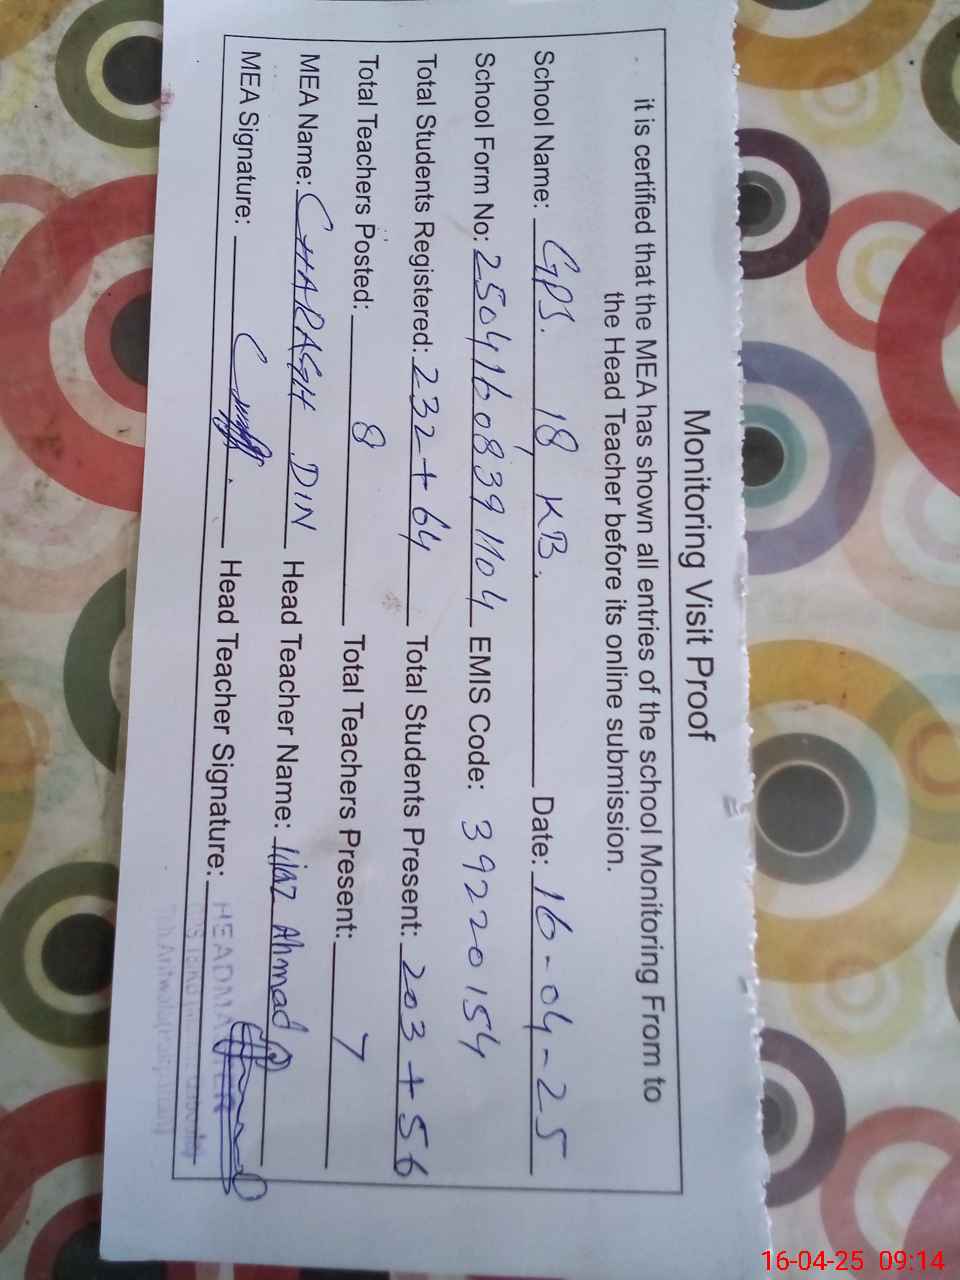 Monitoring Visit Proof
it is certified that the MEA has shown all entries of the school Monitoring From to
the Head Teacher before its online submission.
School Name: GPS. 18 KB. Date: 16-04-25
School Form No: 25041608391104 EMIS Code: 39220154
Total Students Registered: 232+64 Total Students Present: 203+56
Total Teachers Posted: 8 Total Teachers Present: 7
MEA Name: CHARAGH DIN Head Teacher Name: Ijaz Ahmad
MEA Signature: Head Teacher Signature:
HEADMASTER
16-04-25 09:14